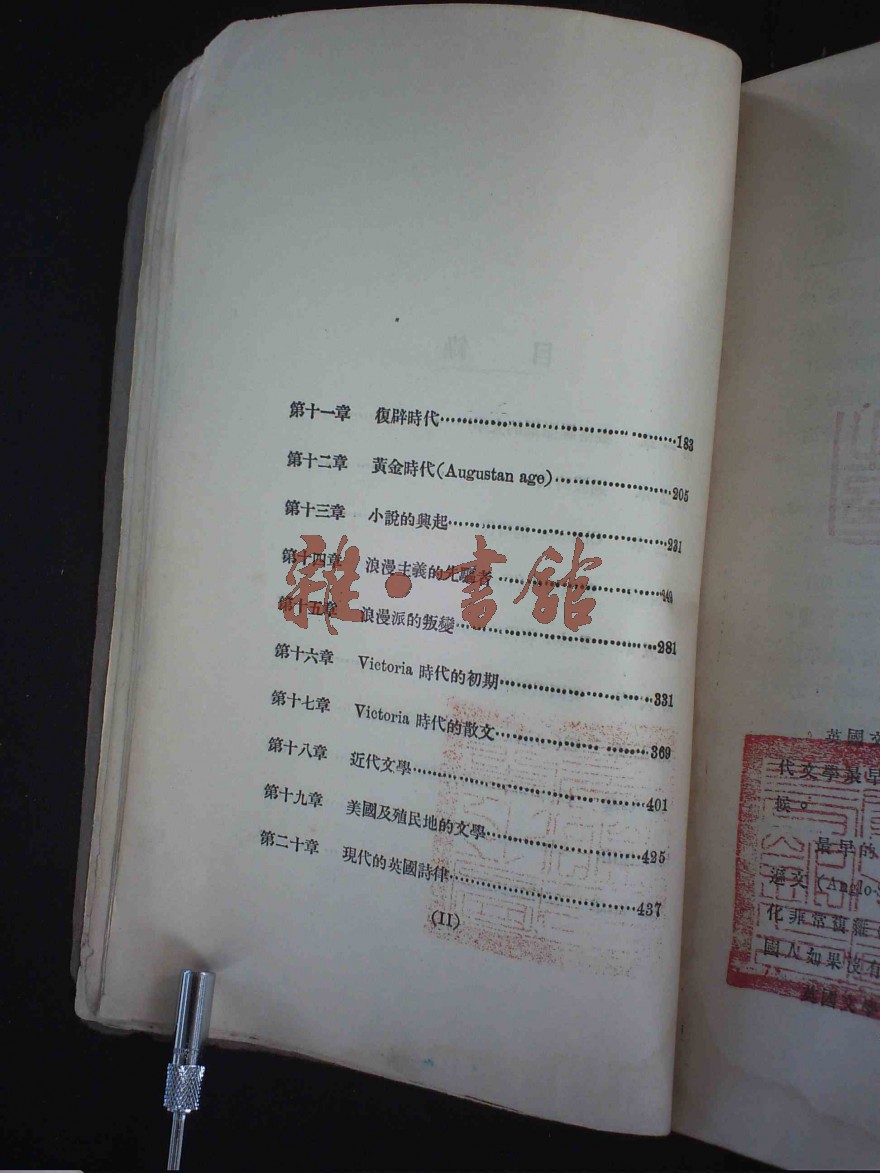 目錄
第十一章 復辟時代……183
第十二章 黃金時代(Augustan age)……205
第十三章 小說的興起……231
第十四章 浪漫主義的先驅者……249
第十五章 浪漫派的叛變……281
第十六章 Victoria 時代的初期……331
第十七章 Victoria 時代的散文……369
第十八章 近代文學……401
第十九章 美國及殖民地的文學……425
第二十章 現代的英國詩律……437
(II)
雜·書館
英國文
代文學最早
候。
最早的
遜文(Anglo-S
化非常複雜
國人如果沒有
英國文學